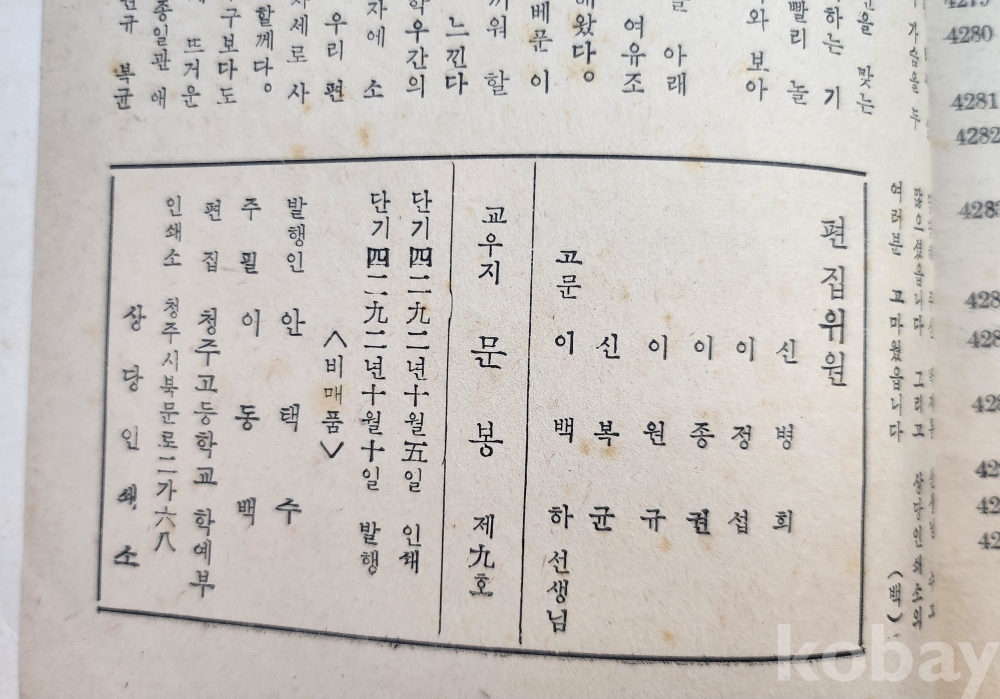 편집위원
신병희
이정섭
이종권
이원규
신복균
고문 이백하 선생님
교우지 문봉 제九호
단기四二九二년十월五일 인쇄
단기四二九二년十월十일 발행
<비매품>
발행인 안택주
주필 이동백
편집 청주고등학교 학예부
인쇄소 청주시북문로二가六八
상당인쇄소
을 맞는
하는 기
빨리 놀
와 보아
아래
여유조
해왔다。
베푼 이
끼워 할
느낀다
학우간의
자에 소
우리 편
자세로 사
할께다。
구보다도
뜨거운
종일관 애
원규 복균
가슴을 두
많으셨읍니다 그리고 상당인쇄소의
여러분 고마웠읍니다
(백)
4280
4281
4282
kobay